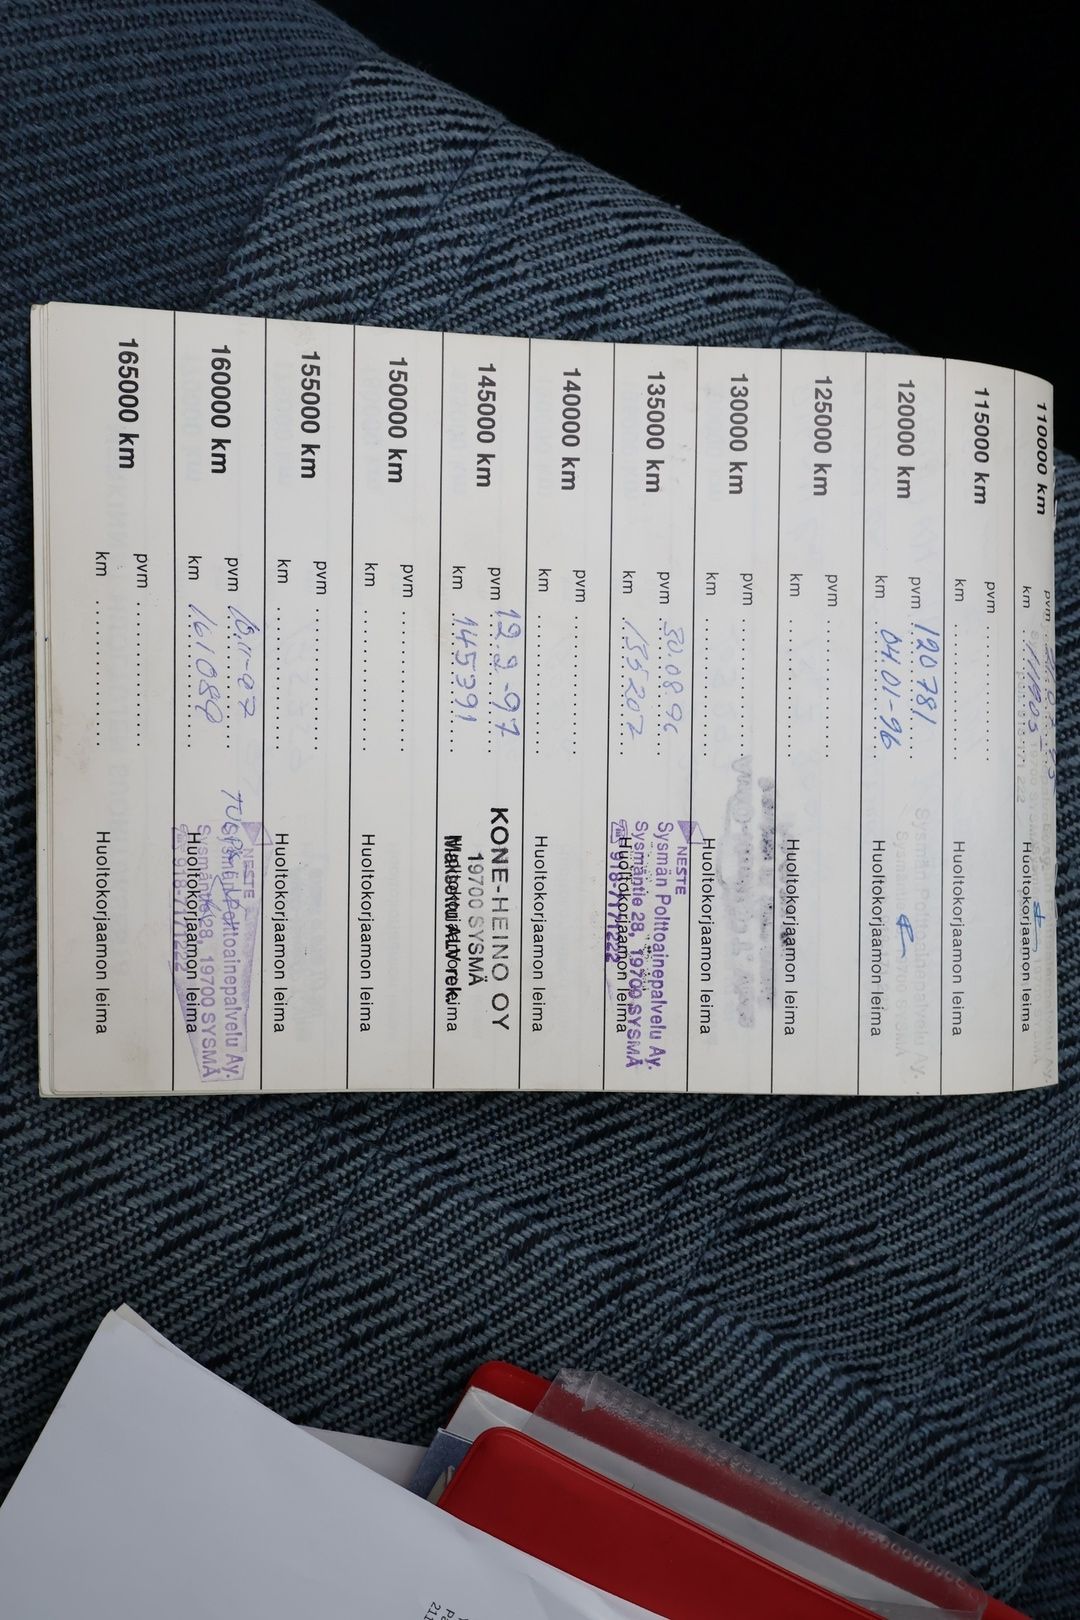 110000 km
pvm
km 111905
Huoltokorjaamon leima
115000 km
pvm
km
Huoltokorjaamon leima
120000 km
pvm 120781
km 04.01-96
Sysmän Polttoainepalvelu Ay.
Huoltokorjaamon leima
125000 km
pvm
km
Huoltokorjaamon leima
130000 km
pvm
km
Huoltokorjaamon leima
135000 km
pvm 30.08.96
km 135202
NESTE
Sysmän Polttoainepalvelu Ay.
Sysmäntie 28, 19700 SYSMÄ
918-7171222
Huoltokorjaamon leima
140000 km
pvm
km
Huoltokorjaamon leima
145000 km
pvm 12.2-97
km 145391
KONE-HEINO OY
19700 SYSMÄ
Huoltokorjaamon leima
150000 km
pvm
km
Huoltokorjaamon leima
155000 km
pvm
km
Huoltokorjaamon leima
160000 km
pvm
km 161089
NESTE
Sysmän Polttoainepalvelu Ay.
Sysmäntie 28, 19700 SYSMÄ
918-7171222
Huoltokorjaamon leima
165000 km
pvm
km
Huoltokorjaamon leima